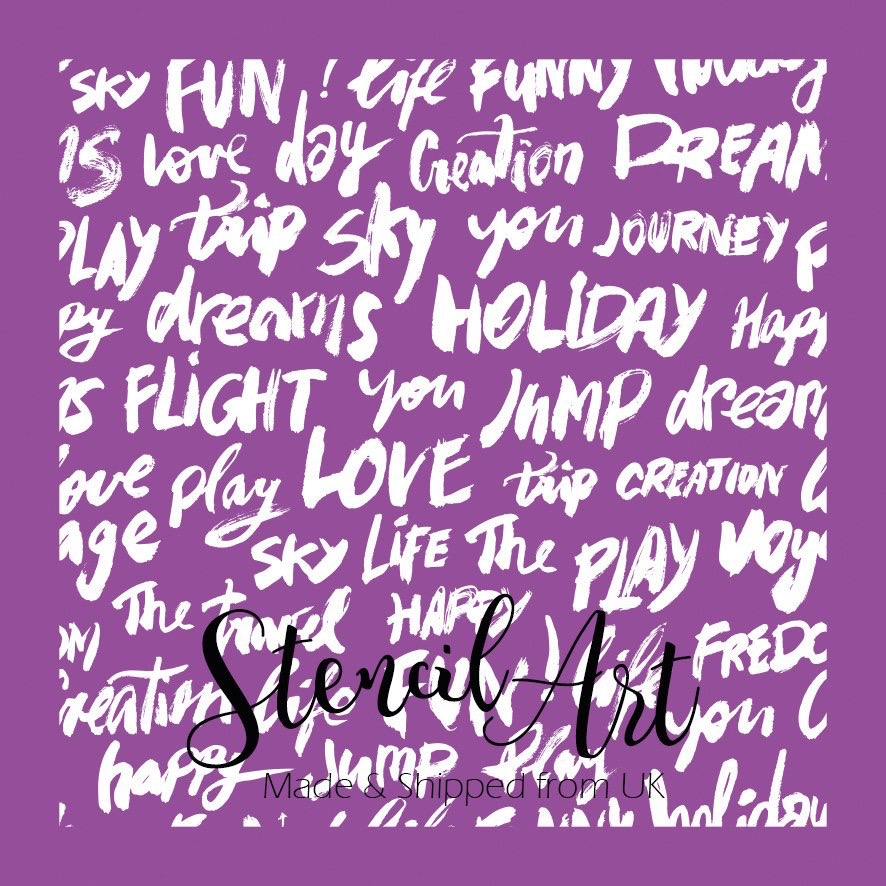 SKY FUN ! life FUNNY holiday
IS love day Creation DREAM
PLAY trip Sky you JOURNEY F
py dreams HOLiDAY Happ
as FLiGHT you JuMP dream
ove play LOVE trip CREATION
age SKY LiFE The PLAY Voya
The travel HAPPY ! life FREDO
Stencil Art
reation life FUN you
happy Jump Play
Made & Shipped from UK
holiday